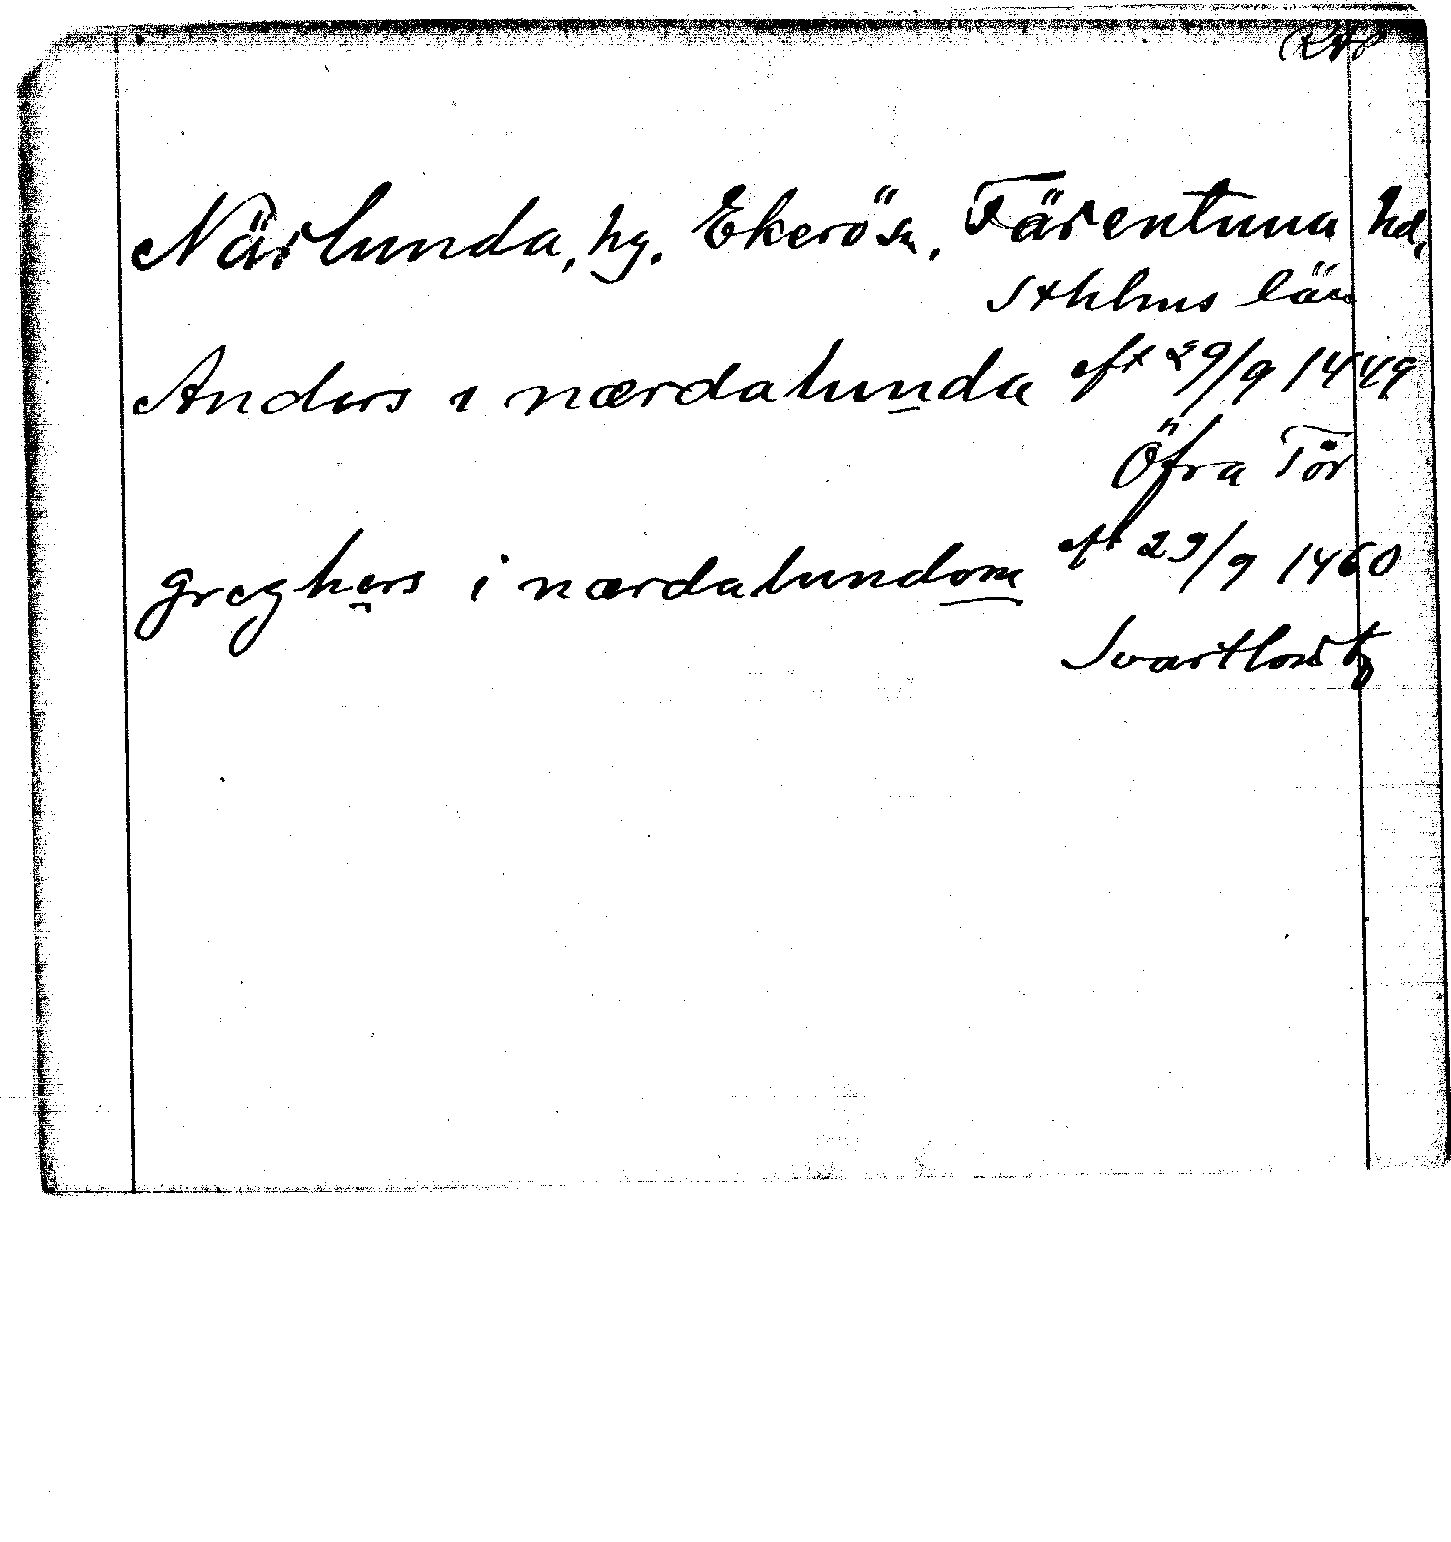 Närlunda, hg. Ekerö sn, Färentuna hd.
Sthlms län
Anders i nærdalunda eft 29/9 1449
Öfra Tör
greghers i nærdalundom eft 29/9 1460